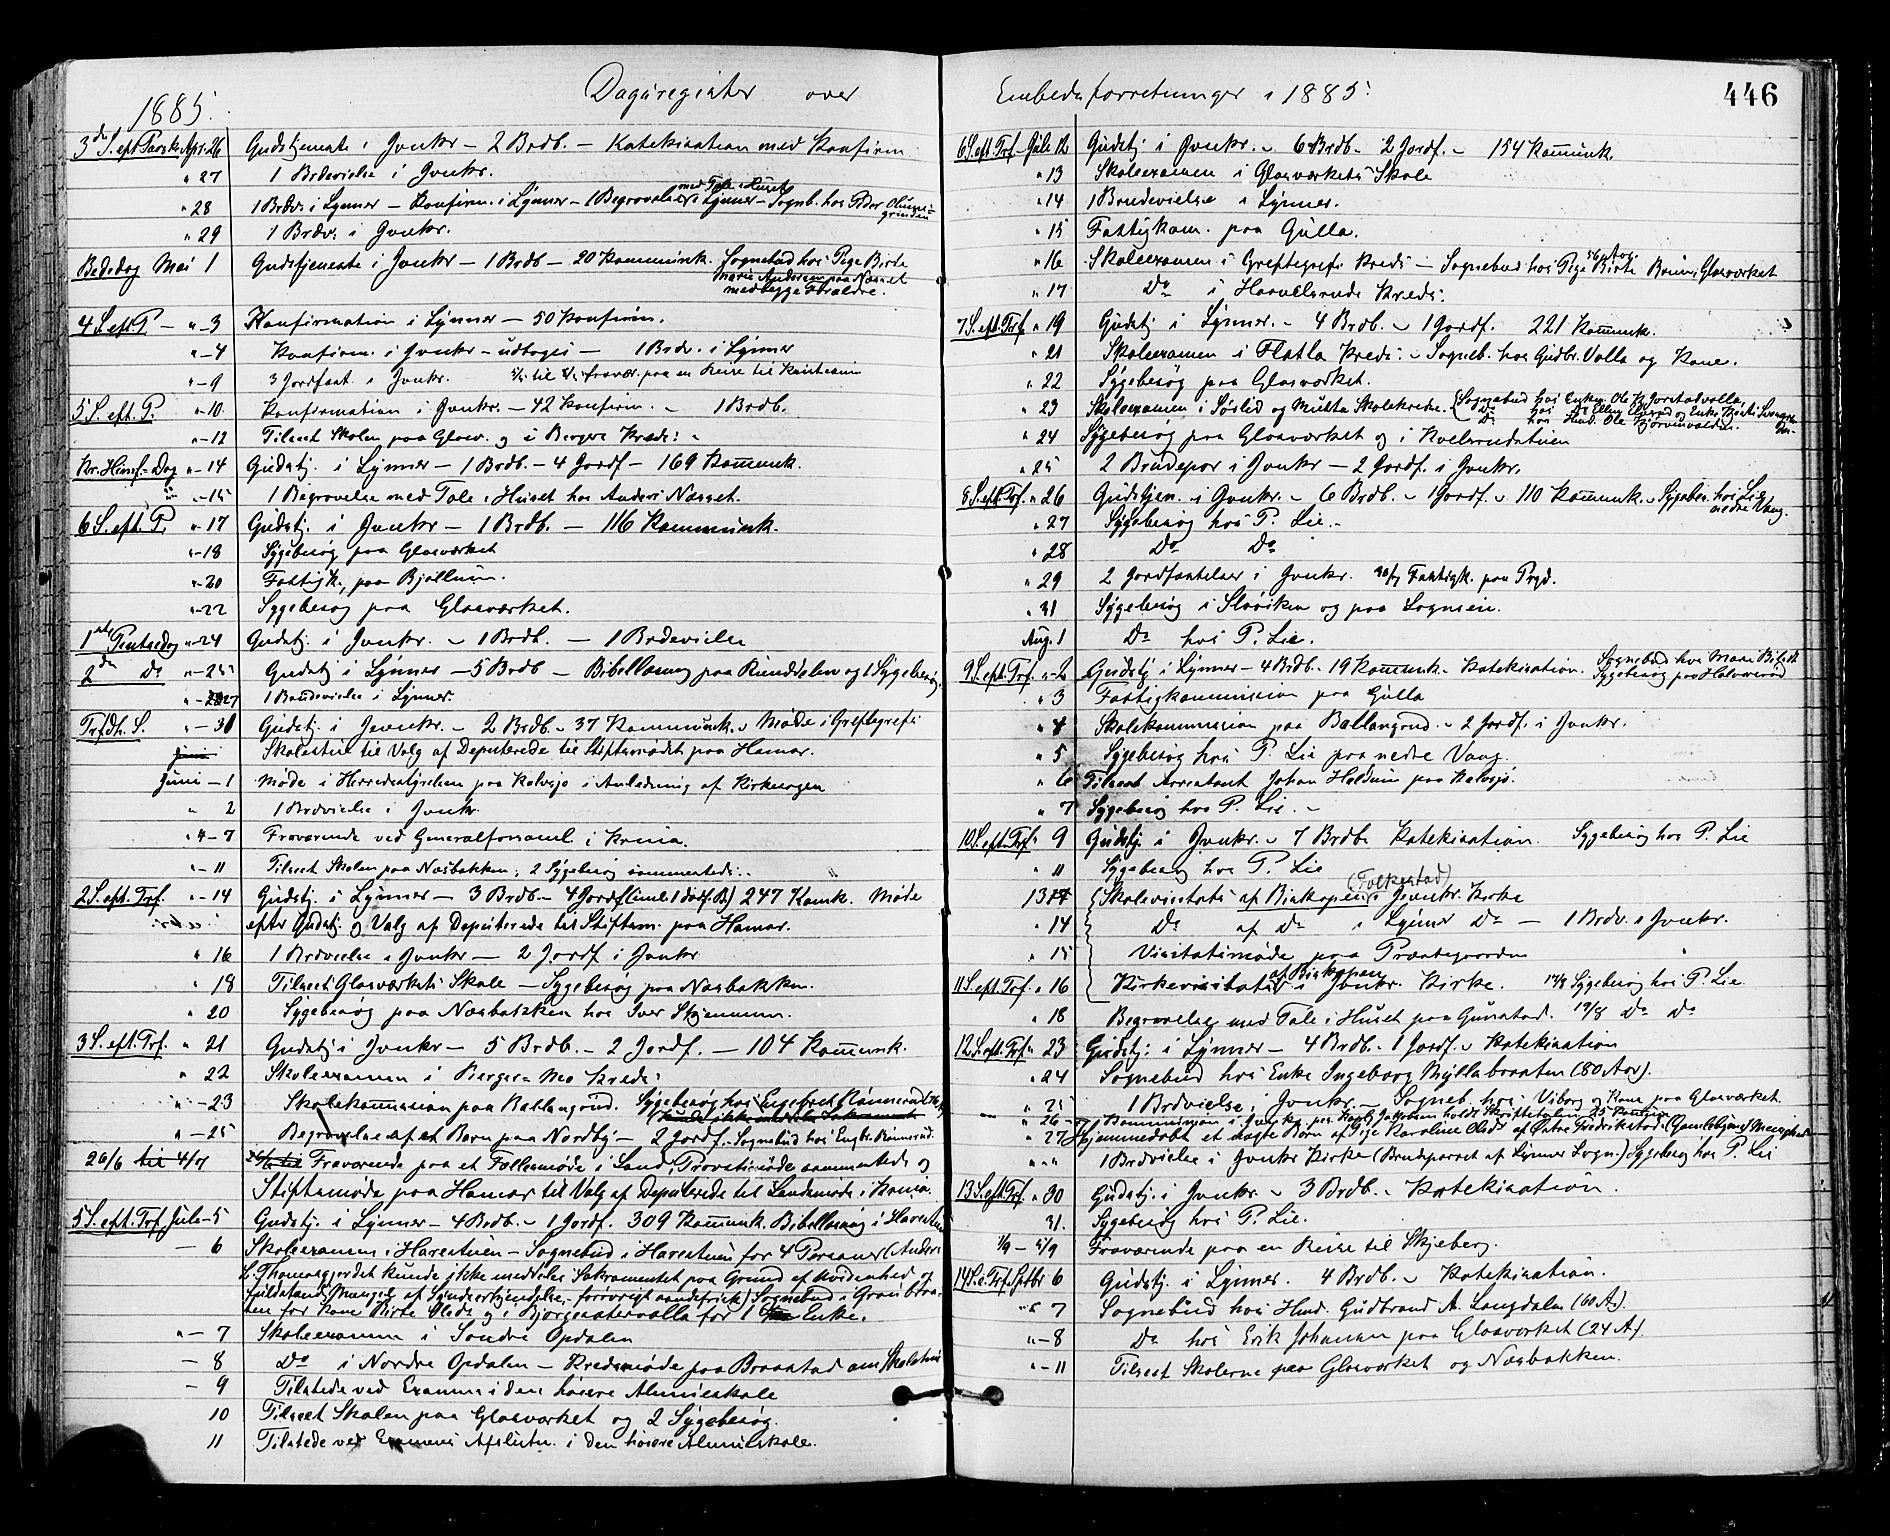 1885.
Dagsregister over
3die S. eft Paaske Apr. 26 Gudstjeneste i Jevnkr – 2 Brdb. – Katekisation med Konfirm.
" 27 1 Brdevielse i Jvnkr.
" 28 1 Brdv. i Lynner – Konfirm. i Lynner – 1 Begravelse i Lynner med Tale i Huset – Sogneb. hos Peder
" 29 1 Brdv. i Jvnkr.
Bededag Mai 1 Gudstjeneste i Jvnkr – 1 Brdb – 20 Kommunk. Sognebud hos Pige Birte
Marie Andersen paa Næsset
med begge Forældre.
4 S. eft P – " – 3 Konfirmation i Lynner – 50 Konfirm.
" – 4 Konfirm. i Jvnkr – udtoges – 1 Brdv. i Lynner
" – 9 3 Jordfæst. i Jvnkr. til fravær. paa en Reise til Kristiania
5 S. eft. P. " – 10. Konfirmation i Jvnkr. – 42 Konfirm. – 1 Brdb.
" – 12 Tilseet Skolen paa Glasv. og i Bergers Kreds.
Kr. Himf. Dag " – 14 Gudstj. i Lynner – 1 Brdb. – 4 Jordf – 169 Kommunk.
" – 15 1 Begravelse med Tale i Huset hos Anders Næsset.
6 S. eft. P. " – 17 Gudstj. i Jvnkr – 1 Brdb. – 116 Kommunk.
" – 18 Sygebesøg paa Glasværket
" – 20 Fattigk. paa Bjøllum.
" – 22 Sygebesøg paa Glasværket.
1ste Pintsedag " – 24 Gudstj. i Jvnkr. – 1 Brdb. – 1 Brdevielse
2den Do " – 25 Gudstj i Lynner – 5 Brdb – Bibellæsning paa Rundelen og 1 Sygebesøg.
" – 27 1 Brudevielse i Lynner.
Trfdh. S. " – 31 Gudstj. i Jevnkr. – 2 Brdb – 37 Kommunk. Møde i Greftegrefs
Juni Skolestue til Valg af Deputerede til Stiftsmødet paa Hamar.
Juni – 1 Møde i Herredsstyrelsen paa Kalvsjø i Anledning af Kirkesagen
" 2 1 Brdvielse i Jvnkr.
" 4 – 7 Fraværende ved Generalforsaml. i Krnia.
" – 11 Tilseet Skolen paa Næsbakken; 2 Sygebesøg sammesteds.
2 S. eft. Trf. " – 14 Gudstj. i Lynner – 3 Brdb – 4 Jordf 247 Komk. Møde
efter Gudstj. og Valg af Deputerede til Stiftsm. paa Hamar.
" 16 1 Brdvielse i Jvnkr – 2 Jordf i Jvnkr
" 18 Tilseet Glasværkets Skole – Sygebesøg paa Næsbakken.
" 20 Sygebesøg paa Næsbakken hos Iver Skjennum.
3 S. eft. Trf. " 21 Gudstj i Jvnkr – 5 Brdb. – 2 Jordf. – 104 Kommunk.
" 22 Skoleexamen i Berger-Mo Kreds
" – 23 Skolekommission paa Ballangrud. Sygebesøg hos Engebret
" – 25 Begravelse af et Barn paa Nordby – 2 Jordf. – Sognebud hos Engbr. Rønnerud.
26/6 til 4/7 Fraværende paa et Fællesmøde i Land, Provstimøde sammesteds og
Stiftsmøde paa Hamar til Valg af Deputerede til Landsmøde i Krnia.
5 S. eft. Trf. Juli – 5 Gudstj. i Lynner – 4 Brdb. – 1 Jordf. 309 Kommunk. Bibellæsning i Harestuen
– 6 Skoleexamen i Harestuen – Sognebud i Harestuen for 4 Personer (Anders
L. Thomasgjordet kunde ikke meddeles Sakramentet paa Grund af Uvidenhed og
fuldstændig Mangel af Synderkjendelse, forøvrigt aandsfrisk) Sognebud i
for Kone Birte Olsd. og i Bjørgesætervolla for 1 Enke.
" – 7 Skoleexamen i Søndre Opdalen
– 8 Do i Nordre Opdalen – Kredsmøde paa Braastad om
– 9 Tilstede ved Examen i den høiere Almueskole
10 Tilseet Skolen paa Glasværket og 2 Sygebesøg.
11 Tilstede ved Examens Afslutn. i den høiere Almueskole.
Embedsforretninger i 1885.
446
6 S. eft. Trf – Juli 12 Gudstj i Jvnkr. – 6 Brdb – 2 Jordf. – 154 Kommunk.
" 13 Skoleexamen i Glasværkets Skole
" 14 1 Brudevielse i Lynner.
" 15 Fattigkom. paa Gulla.
" 16 Skoleexamen i Greftegrefs Kreds – Sognebud hos Pige Birte Brun, Glasværket
" 17 Do i Haavelsrud Kreds.
7 S. eft. Trf. " 19 Gudstj i Lynner. – 4 Brdb. – 1 Jordf. 221 Kommunk.
" 21 Skoleexamen i Flatla Kreds – Sogneb. hos Gudbr. Volla og Kone.
" 22 Sygebesøg paa Glasværket.
" 23 Skoleexamen i Sørlid og Mutta Skolekredse. Sognebud hos Enkem. Ole Kjørstadvolla,
" 24 Sygebesøg paa Glasværket og i
" 25 2 Brudepar i Jvnkr – 2 Jordf. i Jvnkr.
8 S. eft. Trf. " 26 Gudstjen. i Jvnkr. – 6 Brdb. – 1 Jordf. – 110 Kommunk. – Sygebes. hos Lie
nedre Vang.
" 27 Sygebesøg hos P. Lie.
" 28 Do Do
" 29 2 Jordfæstelser i Jvnkr. 30/7 Fattigk. paa Prgd.
" 31 Sygebesøg i Sløviken og paa Lognsein.
Aug. 1 Do hos P. Lie.
9 S. eft. Trf. " – 2 Gudstj i Lynner – 4 Brdb. – 19 Kommunk. – Katekisation. Sognebud hos
" 3 Fattigkommission paa Gulla
" 4 Skolekommission paa Ballangrud. – 2 Jordf. i Jvnkr.
" 5 Sygebesøg hos P. Lie paa nedre Vang.
" 6 Tilseet Arrestant Johan Haldum paa Kalvsjø.
" 7 Sygebesøg hos P. Lie. –
10 S. eft. Trf. " 9 Gudstj. i Jvnkr. – 7 Brdb. Katekisation. Sygebesøg hos P. Lie
" 11 Sygebesøg hos P. Lie
13 Skolevisitats af Biskopen (Folkestad) i Jevnkr. Kirke
" 14 Do af Do i Lynner Do – 1 Brdv. i Jvnkr.
" 15 Visitatsmøde paa Præstegaarden
11 S. eft. Trf. " 16 Kirkevisitats af Biskopen i Jvnkr. Kirke. 17/8 Sygebesøg hos P. Lie
" 18 Begravelse med Tale i Huset paa Gunstad. 19/8 Do Do
12 S. eft. Trf. " 23 Gudstj. i Lynner – 4 Brdb. 1 Jordf. – Katekisation
" 24 Sognebud hos Enke Ingeborg Myllabraaten (80 Aar).
" 25 1 Brdvielse i Jvnkr. – Sogneb. hos Viborg og Kone paa Glasværket.
" 26 – Kommunion i Jvnkr
" 27 Hjemmedøbt et uægte Barn af Pige Karoline Olsdr. af Østre Fredrikstad
" " 1 Brdvielse i Jvnkr Kirke (Brudeparret af Lynner Sogn.) Sygebesøg hos P. Lie
13 S. eft. Trf. " 30 Gudstj. i Jvnkr – 3 Brdb. – Katekisation.
31. Sygebesøg hos P. Lie.
1/9 – 5/9 Fraværende paa en Reise til Skjeberg.
14 S. e. Trf. Sptbr 6 Gudstj. i Lynner. 4 Brdb. – Katekisation.
" 7 Sognebud hos Husm. Gudbrand A. Langdalen (60 A.).
" – 8 Do hos Erik Johansen paa Glasværket (24 A).
" – 11 Tilseet Skolerne paa Glasværket og Næsbakken.